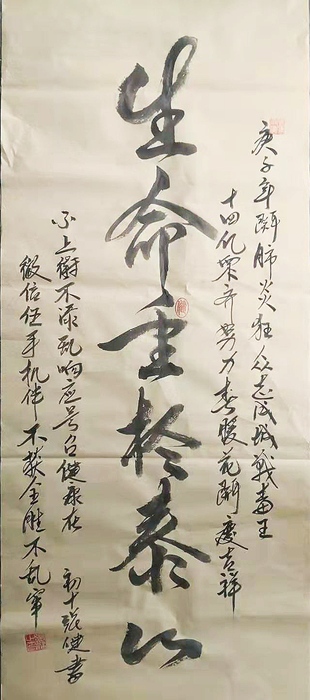 庚子年鬪肺炎狂众志成城战毒王
十四亿众齐努力春暖花開庆吉祥
生命重於泰山
不上街不添乱响应号召健康在
微信在手机伴不获全胜不乱窜
初十 健书